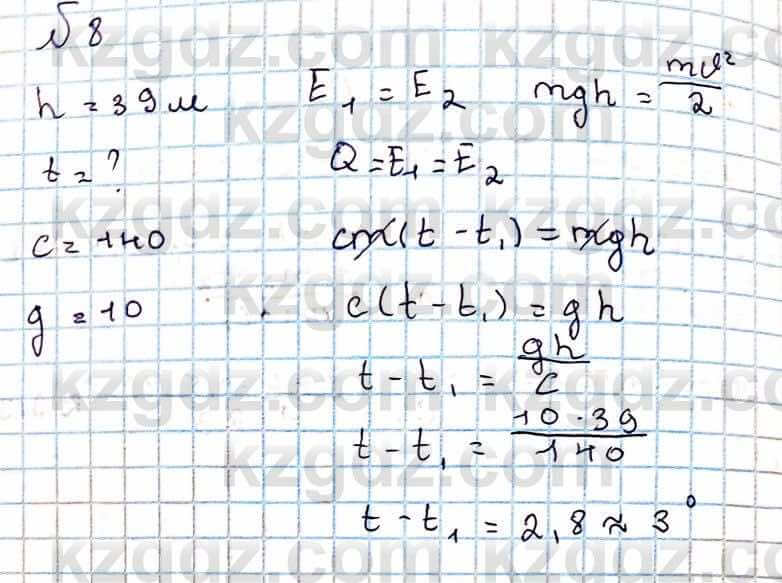 № 8
h = 39 м
t = ?
c = 140
g = 10
E₁ = E₂ mgh = mv²/2
Q = E₁ = E₂
cm(t - t₁) = mgh
c(t - t₁) = gh
t - t₁ = gh/c
t - t₁ = 10·39/140
t - t₁ = 2,8 ≈ 3°
kzgdz.com